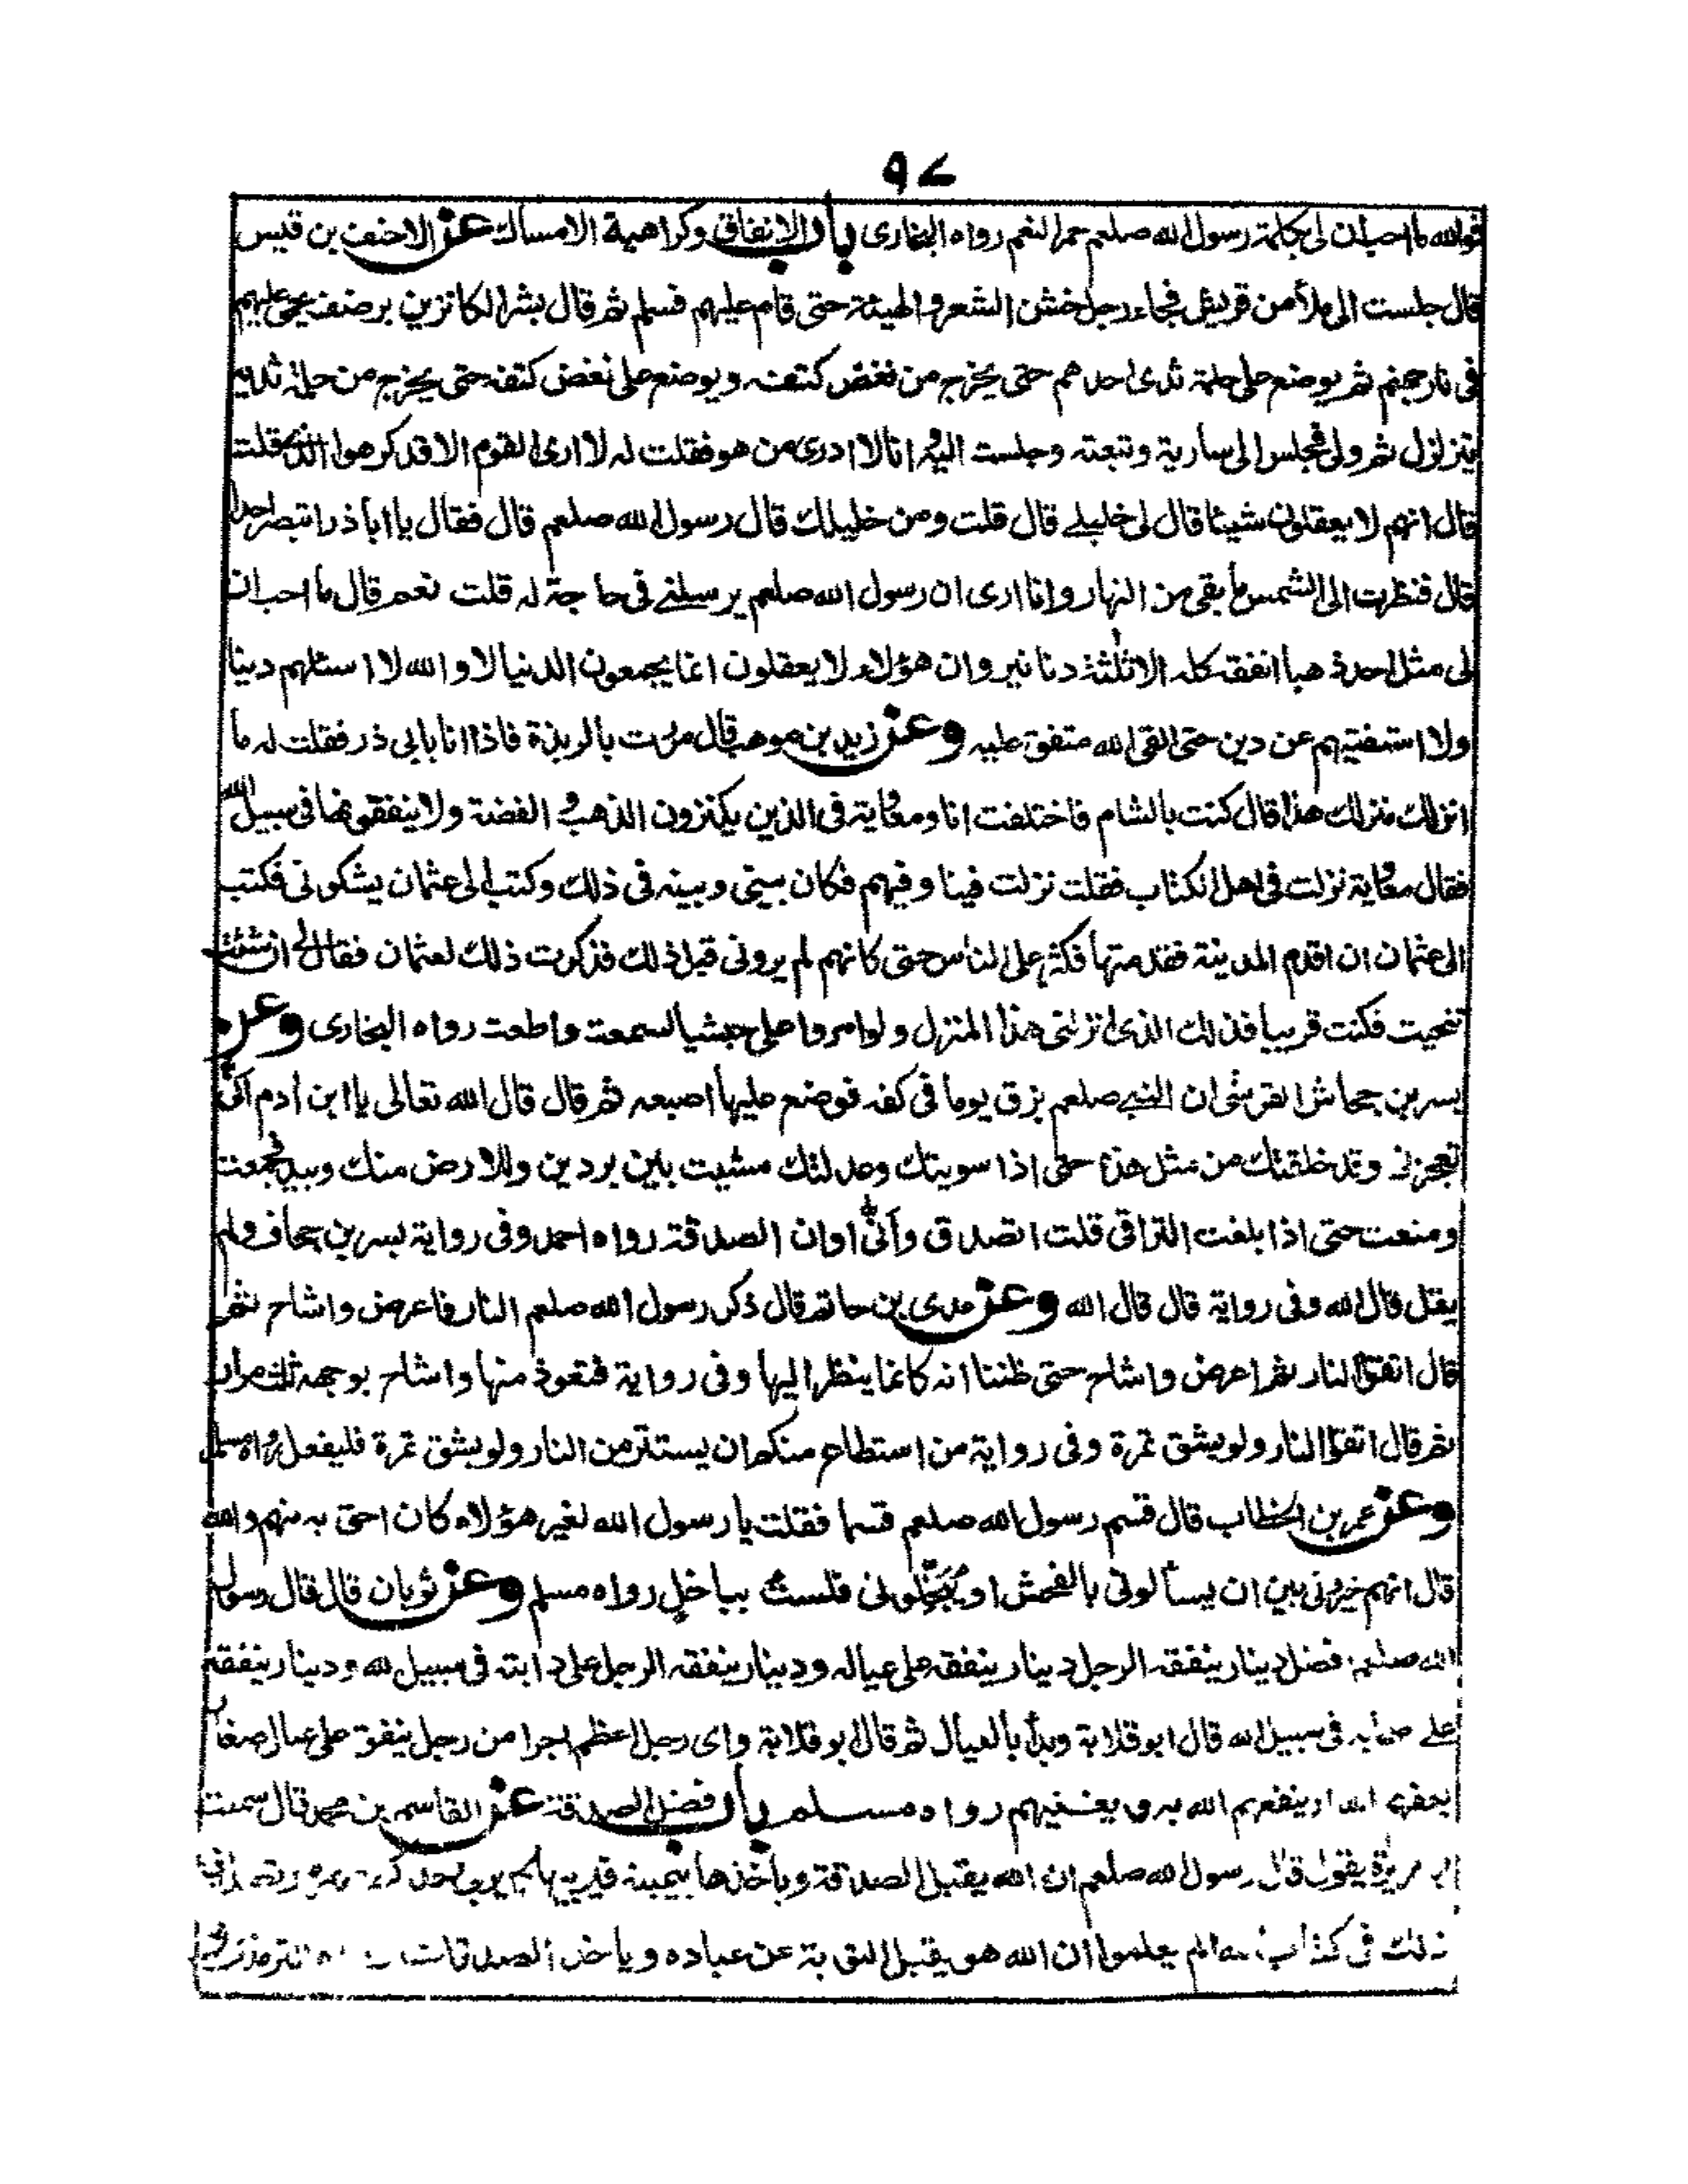 ٩٧
فوالله ما احب ان لى بكلمة رسول الله صلعم حمر النعم رواه البخارى باب الانفاق وكراهية الامساك عن الاحنف بن قيس
قال جلست الى ملأ من قريش فجاء رجل خشن الشعر والهيئة حتى قام عليهم فسلم ثم قال بشر الكانزين برضف يحمى عليهم
فى نار جهنم ثم يوضع على حلمة ثدى احدهم حتى يخرج من نغض كتفه ويوضع على نغض كتفه حتى يخرج من حلمة ثديه
يتزلزل ثم ولى فجلس الى سارية وتبعته وجلست اليه وانا لا ادرى من هو فقلت له لا ارى القوم الا قد كرهوا الذى قلت
قال انهم لا يعقلون شيئا قال لى خليلے قال قلت ومن خليلك قال رسول الله صلعم قال فقال يا ابا ذر اتبصر احدا
قال فنظرت الى الشمس ما بقى من النهار وانا ارى ان رسول الله صلعم يرسلنے فى حاجة له قلت نعم قال ما احب ان
لى مثل احد ذهبا انفقه كله الا ثلثة دنانير وان هؤلاء لا يعقلون انما يجمعون الدنيا لا والله لا اسئلهم دينا
ولا استفتيهم عن دين حتى القى الله متفق عليه وعن زيد بن موهب قال مررت بالربذة فاذا انا بابى ذر فقلت له ما
انزلك منزلك هذا قال كنت بالشام فاختلفت انا ومعاية فى الذين يكنزون الذهب و الفضة ولا ينفقونها فى سبيل الله
فقال معاية نزلت فى اهل الكتاب فقلت نزلت فينا وفيهم فكان بينى وبينه فى ذلك وكتب الى عثمان يشكونى فكتب
الى عثمان ان اقدم المدينة فقدمتها فكثر على الناس حتى كانهم لم يرونى قبل ذلك فذكرت ذلك لعثمان فقال لى ان شئت
تنحيت فكنت قريبا فذلك الذى انزلنى هذا المنزل ولو امروا على حبشيا لسمعت واطعت رواه البخارى وعن
بسر بن جحاش القرشى ان النبے صلعم بزق يوما فى كفه فوضع عليها اصبعه ثم قال قال الله تعالى يا ابن ادم انى
تعجزنى وقد خلقتك من مثل هذا حتى اذا سويتك وعدلتك مشيت بين بردين وللارض منك وبيد فجمعت
ومنعت حتى اذا بلغت التراقى قلت اتصدق وانى اوان الصدقة رواه احمد وفى رواية بسر بن جحاف ولم
يقل قال الله وفى رواية قال قال الله وعن عدى بن حاتم قال ذكر رسول الله صلعم النار فاعرض واشاح ثم
قال اتقوا النار ثم اعرض واشاح حتى ظننا انه كانما ينظر اليها وفى رواية فتعوذ منها واشاح بوجهه ثلث مرات
ثم قال اتقوا النار ولو بشق تمرة وفى رواية من استطاع منكم ان يستتر من النار ولو بشق تمرة فليفعل رواه مسلم
وعن عمر بن الخطاب قال قسم رسول الله صلعم قسما فقلت يا رسول الله لغير هؤلاء كان احق به منهم
قال انهم خيرونى بين ان يسألونى بالفحش او يُبَخِّلونى فلست بباخلٍ رواه مسلم وعن ثوبان قال قال رسول
الله صلعم افضل دينار ينفقه الرجل دينار ينفقه على عياله ودينار ينفقه الرجل على دابته فى سبيل الله ودينار ينفقه
على فى سبيل الله قال ابو قلابة وبدأ بالعيال ثم قال ابو قلابة واى رجل اعظم اجرا من رجل ينفق على عيال صغار
يعفهم الله او ينفعهم الله به ويغنيهم رواه مسلم باب فضل الصدقة عن القاسم بن محمد قال سمعت
ابا هريرة يقول قال رسول الله صلعم ان الله يقبل الصدقة ويأخذها بيمينه فيربيها كما يربى احدكم
ذلك فى كتاب الله الم يعلموا ان الله هو يقبل التوبة عن عباده وياخذ الصدقات الترمذى